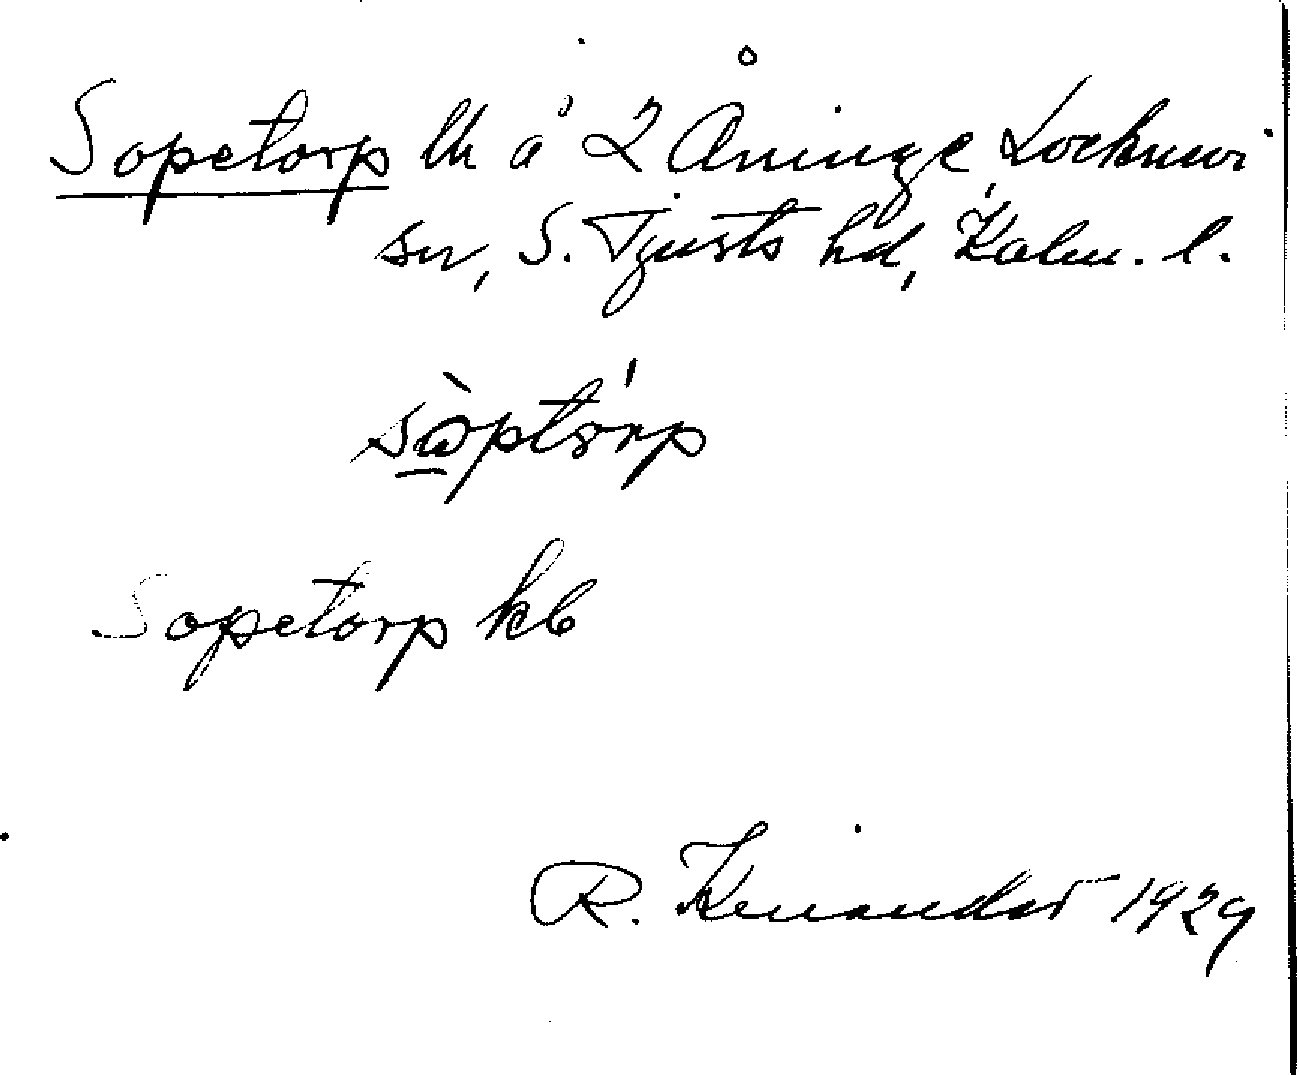 Sopetorp lh å 2 Åninge Locknevi
sn, S. Tjusts hd, Kalm. l.
sòptórp
Sopetorp kb
R. Kenander 1929